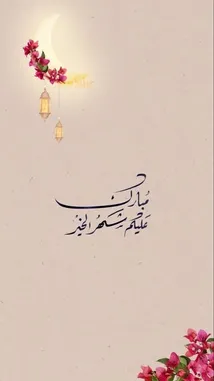 مُبارك
عَليكُم شَهرُ الخَير